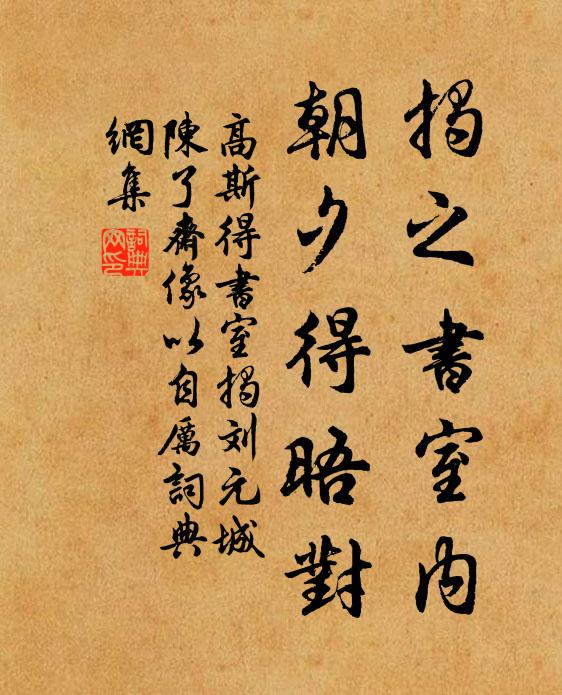 揭之書室內
朝夕得晤對
高斯得書室揭刘元城
陳了齋像以自厲詞典
網集
詞典网印